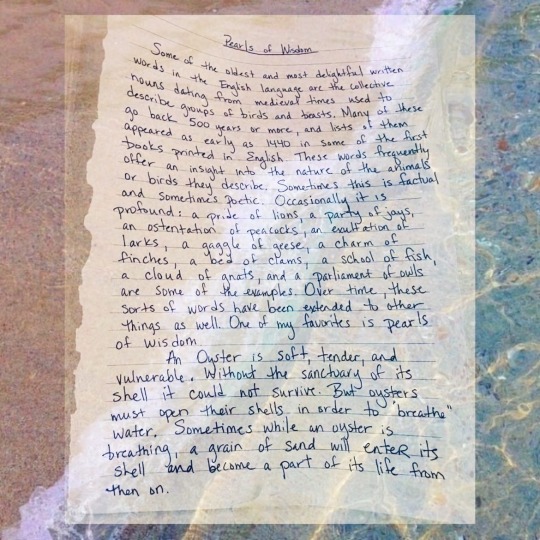 Pearls of Wisdom
Some of the oldest and most delightful written
words in the English language are the collective
nouns dating from medieval times used to
describe groups of birds and beasts. Many of these
go back 500 years or more, and lists of them
appeared as early as 1440 in some of the first
books printed in English. These words frequently
offer an insight into the nature of the animals
or birds they describe. Sometimes this is factual
and sometimes poetic. Occasionally it is
profound: a pride of lions, a party of jays,
an ostentation of peacocks, an exultation of
larks, a gaggle of geese, a charm of
finches, a bed of clams, a school of fish,
a cloud of gnats, and a parliament of owls
are some of the examples. Over time, these
sorts of words have been extended to other
things as well. One of my favorites is pearls
of wisdom.
An Oyster is soft, tender, and
vulnerable. Without the sanctuary of its
shell it could not survive. But oysters
must open their shells in order to "breathe"
water. Sometimes while an oyster is
breathing, a grain of sand will enter its
shell and become a part of its life from
then on.